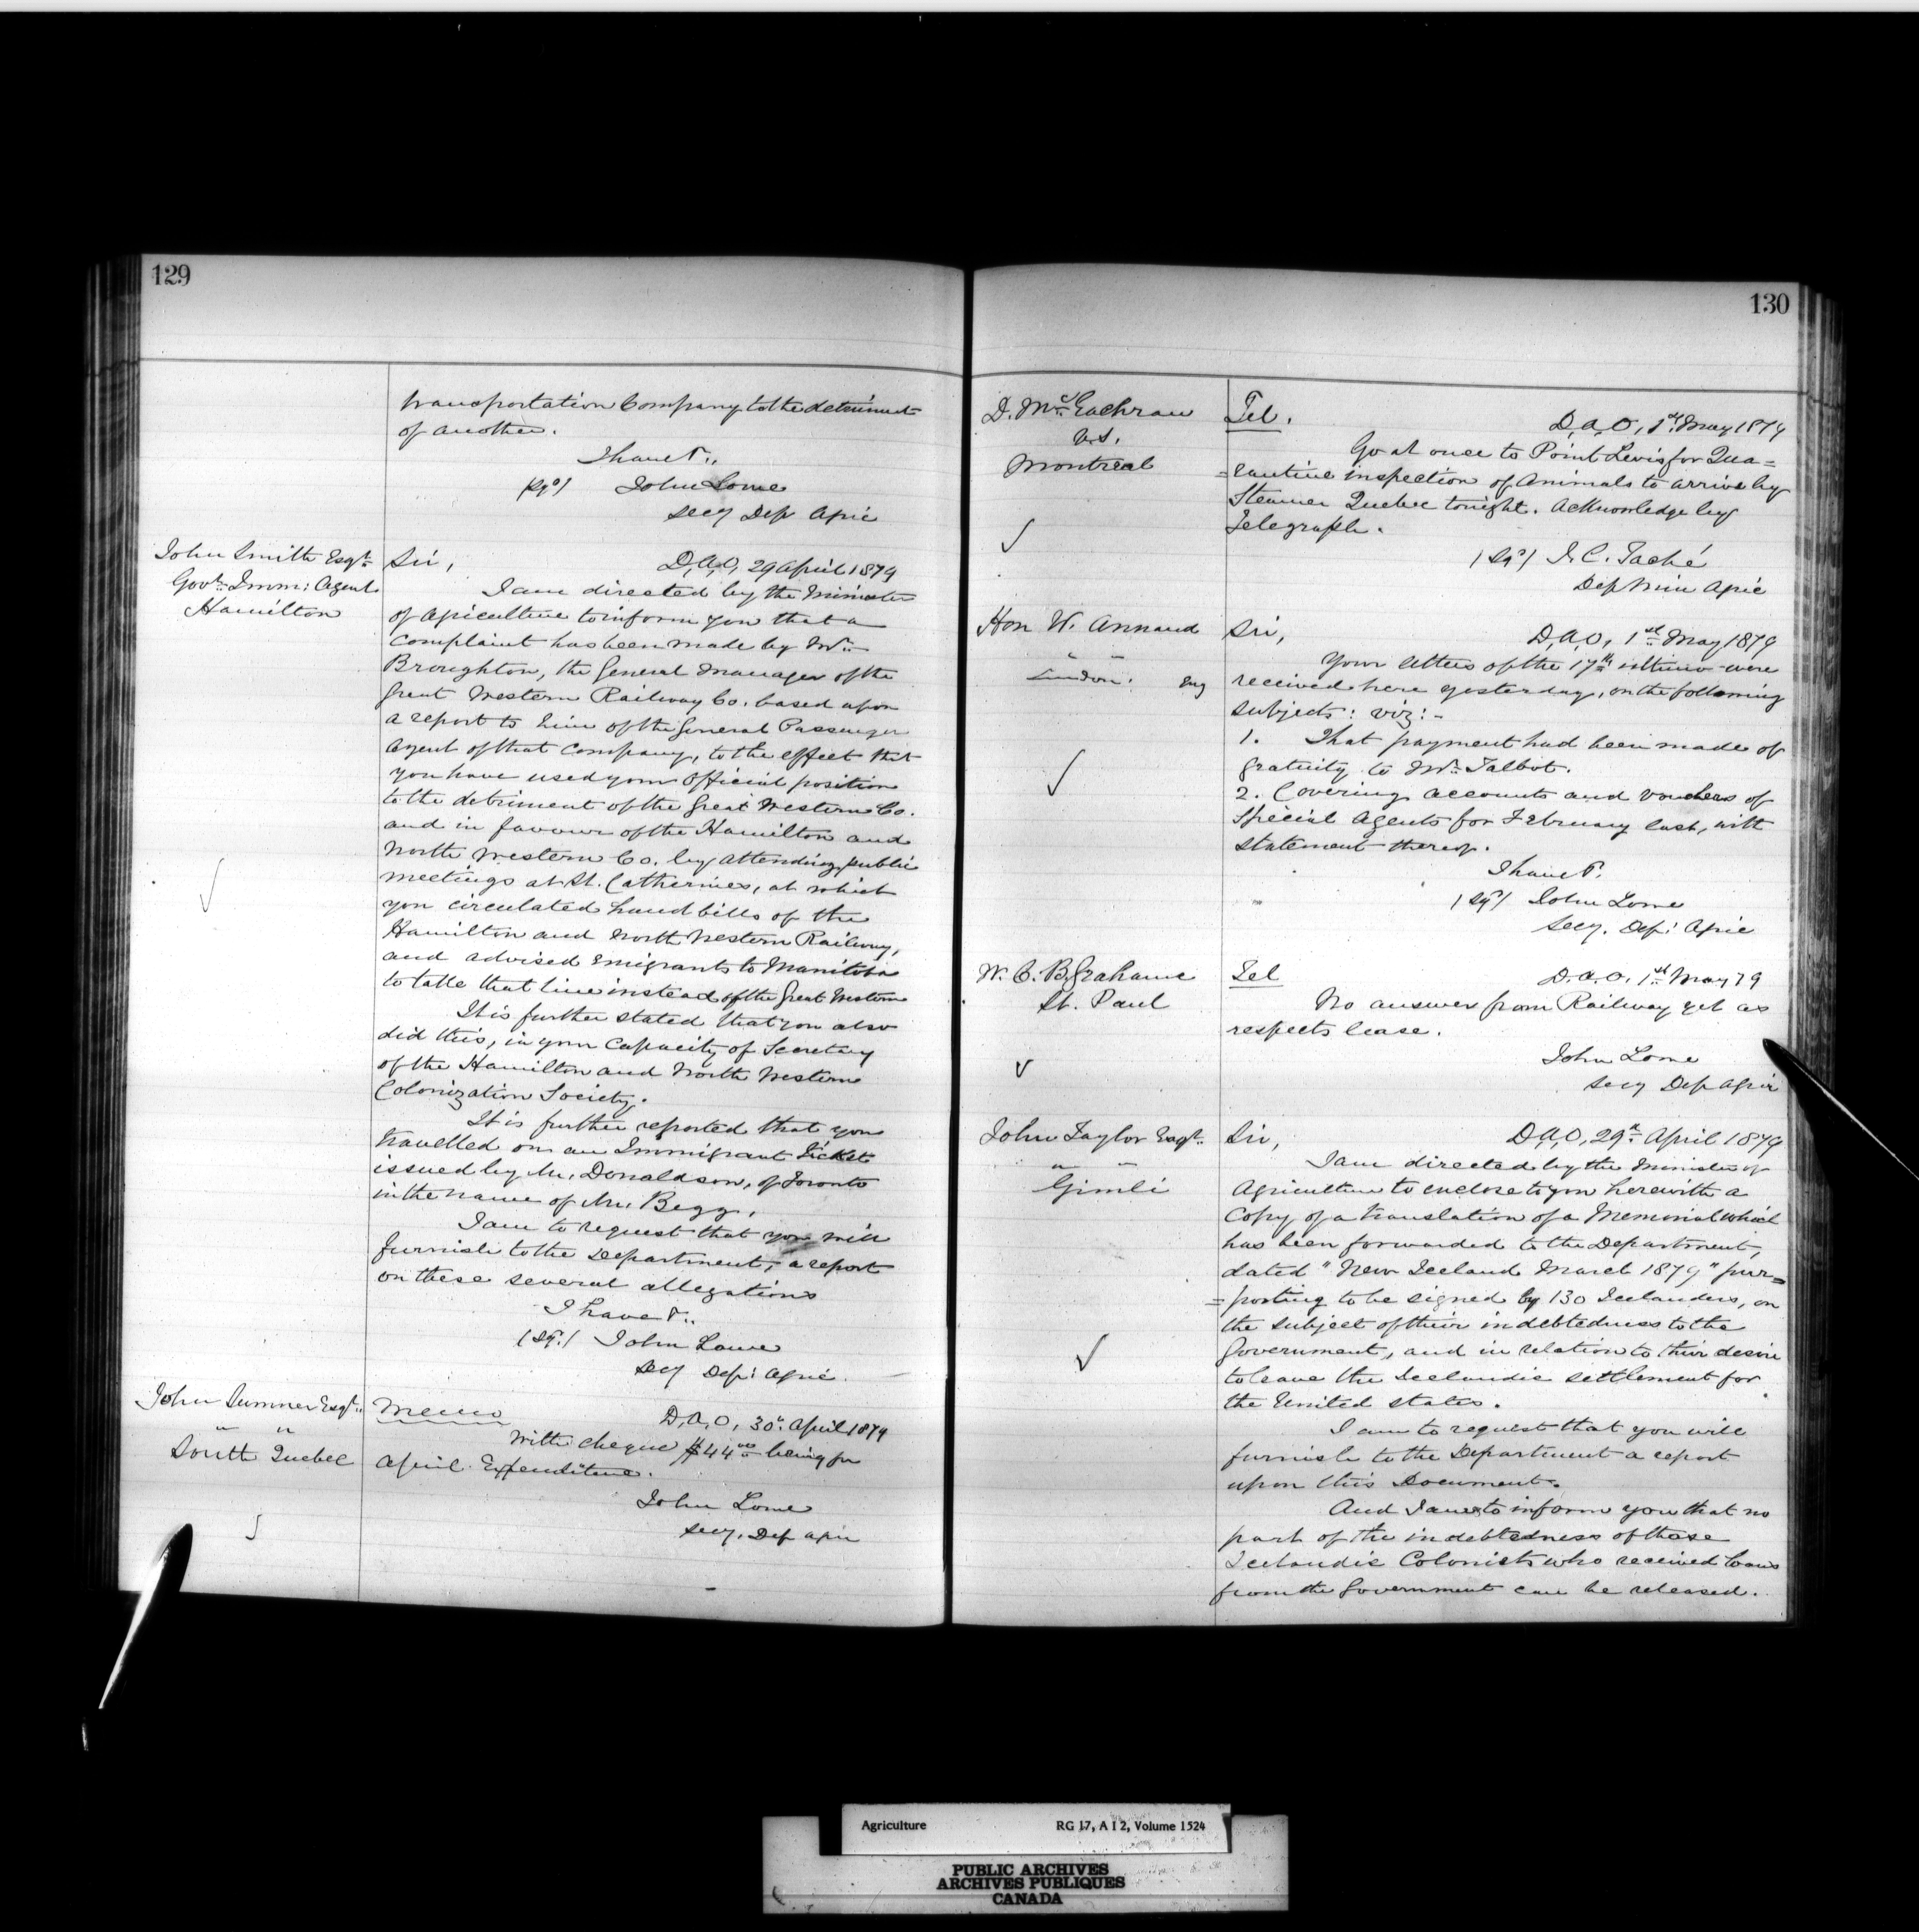 129
transportation Company to the detriment
of another.
I have &c.,
(sgd) John Lowe
Secy Dep Agric
John Smith Esqr.
Govt. Imm: Agent
Hamilton
Sir,
D,A,O, 29 April 1879
I am directed by the Minister
of Agriculture to inform you that a
complaint has been made by Mr.
Broughton, the General Manager of the
Great Western Railway Co. based upon
a report to him of the General Passenger
Agent of that Company, to the effect that
you have used your Official position
to the detriment of the Great Western Co.
and in favour of the Hamilton and
North Western Co. by attending public
meetings at St. Catherines, at which
you circulated hand bills of the
Hamilton and North Western Railway,
and advised emigrants to Manitoba
to take that line instead of the Great Western
It is further stated that you also
did this, in your Capacity of Secretary
of the Hamilton and North Western
Colonization Society.
It is further reported that you
travelled on an Immigrant Ticket
issued by Mr. Donaldson, of Toronto
in the name of Mr. Begg.
I am to request that you will
furnish to the Department, a report
on these several allegations
I have &c.
(sgd.) John Lowe
Secy Dep: Agric.
John Sumner Esqr.
" "
South Quebec
Memo
D,A,O, 30th April 1879
With cheque $44 00 being for
April Expenditure.
John Lowe
Secy. Dep Agric
130
D. McEachran
V.S.
Montreal
Tel.
D,A,O, 1st May 1879
Go at once to Point Levis for Qua=
=rantine inspection of Animals to arrive by
Steamer Quebec tonight. Acknowledge by
Telegraph.
(sgd) J. C. Taché
Dep Min Agric
Hon W. Annand
" "
London. Eng
Sir,
D,A,O, 1st May 1879
Your letters of the 17th ultimo were
received here yesterday, on the following
subjects: viz:-
1. That payment had been made of
gratuity to Mr. Talbot.
2. Covering accounts and vouchers of
Special Agents for February last, with
statement thereof.
I have &c.
(sgd) John Lowe
Secy. Dep: Agric
W. C. B. Grahame
St. Paul
Tel
D.A.O. 1st May 79
No answer from Railway yet as
respects lease.
John Lowe
Secy Dep Agric
John Taylor Esqr.
" "
Gimli
Sir,
D,A,O, 29th April 1879
I am directed by the Minister of
Agriculture to enclose to you herewith a
Copy of a translation of a Memorial which
has been forwarded to the Department,
dated "New Iceland March 1879" pur=
=porting to be signed by 130 Icelanders, on
the subject of their indebtedness to the
Government, and in relation to their desire
to leave the Icelandic settlement for
the United States.
I am to request that you will
furnish to the Department a report
upon this Document.
And I am to inform you that no
part of the indebtedness of those
Icelandic Colonists who received loans
from the Government can be released.
Agriculture RG 17, A I 2, Volume 1524
PUBLIC ARCHIVES
ARCHIVES PUBLIQUES
CANADA